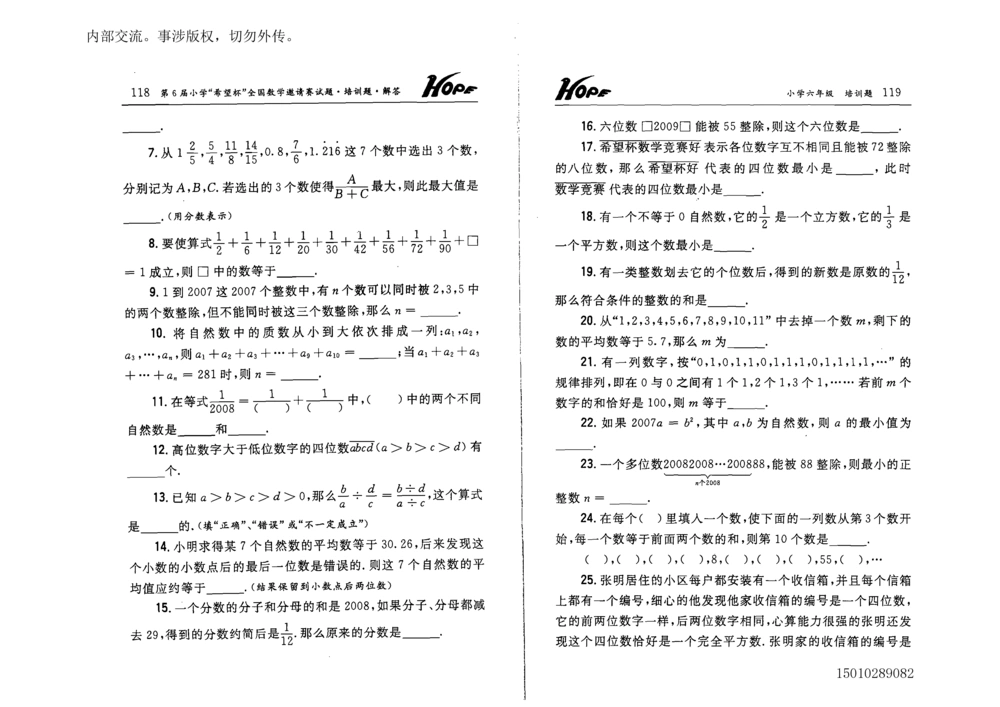 内部交流。事涉版权，切勿外传。
118 第6届小学“希望杯”全国数学邀请赛试题·培训题·解答 HOPE
______.
7. 从 1 2/5, 5/4, 11/8, 14/15, 0.8, 7/6, 1.2̇16̇ 这 7 个数中选出 3 个数,
分别记为 A,B,C. 若选出的 3 个数使得 A/(B+C) 最大,则此最大值是
______.(用分数表示)
8. 要使算式 1/2+1/6+1/12+1/20+1/30+1/42+1/56+1/72+1/90+□
=1 成立,则 □ 中的数等于______.
9. 1 到 2007 这 2007 个整数中,有 n 个数可以同时被 2,3,5 中
的两个数整除,但不能同时被这三个数整除,那么 n = ______.
10. 将自然数中的质数从小到大依次排成一列:a₁,a₂,
a₃,…,aₙ,则 a₁+a₂+a₃+…+a₉+a₁₀=______;当 a₁+a₂+a₃
+…+aₙ=281 时,则 n = ______.
11. 在等式 1/2008=1/(  )+1/(  ) 中,(  )中的两个不同
自然数是______和______.
12. 高位数字大于低位数字的四位数abcd(a>b>c>d)有
______个.
13. 已知 a>b>c>d>0,那么 b/a÷d/c=(b÷d)/(a÷c),这个算式
是______的.(填“正确”、“错误”或“不一定成立”)
14. 小明求得某 7 个自然数的平均数等于 30.26,后来发现这
个小数的小数点后的最后一位数是错误的. 则这 7 个自然数的平
均值应约等于______.(结果保留到小数点后两位数)
15. 一个分数的分子和分母的和是 2008,如果分子、分母都减
去 29,得到的分数约简后是 1/12. 那么原来的分数是______.
HOPE 小学六年级 培训题 119
16. 六位数 □2009□ 能被 55 整除,则这个六位数是______.
17. 希望杯数学竞赛好 表示各位数字互不相同且能被 72 整除
的八位数,那么 希望杯好 代表的四位数最小是______,此时
数学竞赛 代表的四位数最小是______.
18. 有一个不等于 0 自然数,它的 1/2 是一个立方数,它的 1/3 是
一个平方数,则这个数最小是______.
19. 有一类整数划去它的个位数后,得到的新数是原数的 1/12,
那么符合条件的整数的和是______.
20. 从“1,2,3,4,5,6,7,8,9,10,11”中去掉一个数 m,剩下的
数的平均数等于 5.7,那么 m 为______.
21. 有一列数字,按“0,1,0,1,1,0,1,1,1,0,1,1,1,1,…”的
规律排列,即在 0 与 0 之间有 1 个 1,2 个 1,3 个 1,…… 若前 m 个
数字的和恰好是 100,则 m 等于______.
22. 如果 2007a = b²,其中 a,b 为自然数,则 a 的最小值为
______.
23. 一个多位数20082008…200888,能被 88 整除,则最小的正
n个2008
整数 n = ______.
24. 在每个(  )里填入一个数,使下面的一列数从第 3 个数开
始,每一个数等于前面两个数的和,则第 10 个数是______.
(  ),(  ),(  ),(  ),8,(  ),(  ),(  ),55,(  ),…
25. 张明居住的小区每户都安装有一个收信箱,并且每个信箱
上都有一个编号,细心的他发现他家收信箱的编号是一个四位数,
它的前两位数字一样,后两位数字相同,心算能力很强的张明还发
现这个四位数恰好是一个完全平方数. 张明家的收信箱的编号是
15010289082